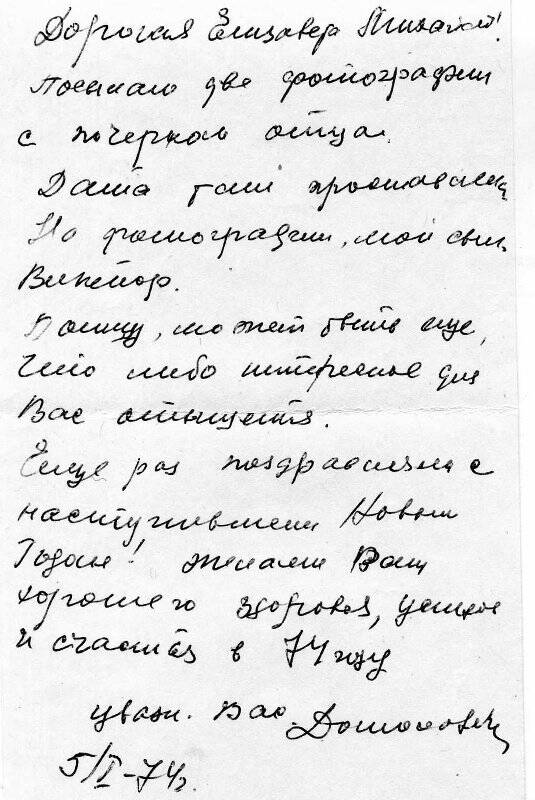 Дорогая Елизавета
Посылаю две фотографии
с почерком отца.
Дата там проставлена
На фотографии, мой сын
Виктор.
Поищу, может быть еще,
что либо интересное для
Вас отыщется.
Еще раз поздравляем с
наступившим Новым
Годом! Желаем Вам
хорошего здоровья, успехов
и счастья в 74 году
уваж. Вас
5/I-74г.